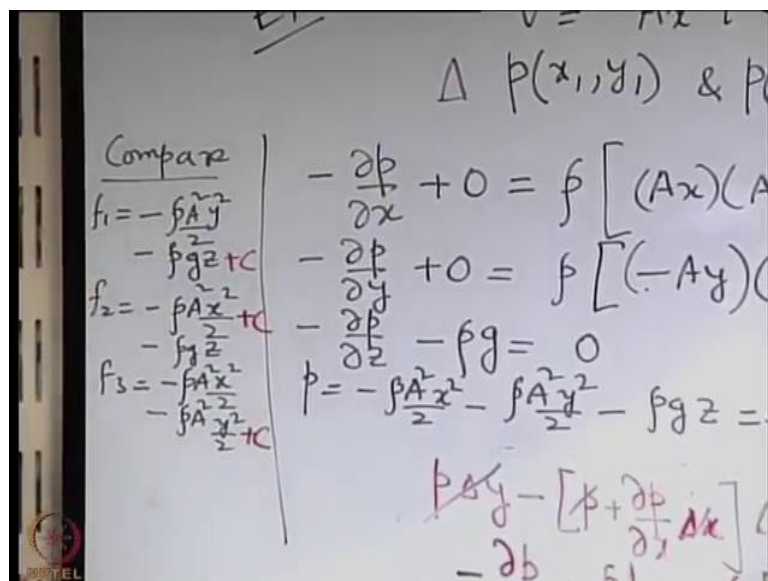 V = Ax i
Δ p(x₁, y₁) & p(
Compare
f₁ = - ρA²y²/2
- ρgz + C
f₂ = - ρA²x²/2 + C
- ρgz
f₃ = - ρA²x²/2
- ρA²y²/2 + C
- ∂p/∂x + 0 = ρ[(Ax)(A
- ∂p/∂y + 0 = ρ[(-Ay)(
- ∂p/∂z - ρg = 0
p = - ρA²x²/2 - ρA²y²/2 - ρgz =
pΔy - [p + ∂p/∂x Δx] (
- ∂p
NPTEL